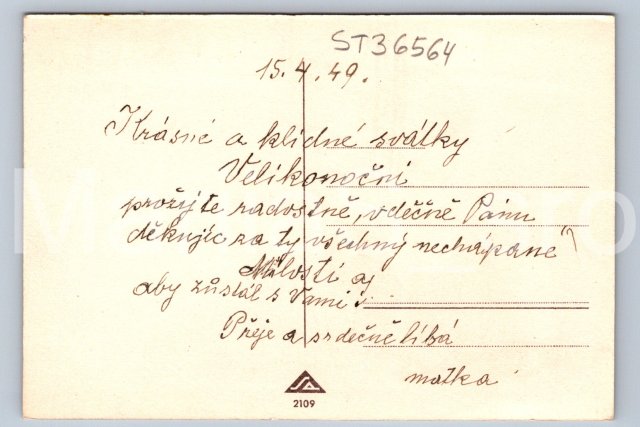 ST36564
15.4.49.
Krásné a klidné svátky
Velikonoční
prožijte radostně, vděčně Pánu
děkujíc za ty všechny nechápané
Milosti a
aby zůstal s Vámi
Přeje a srdečně líbá
matka
2109